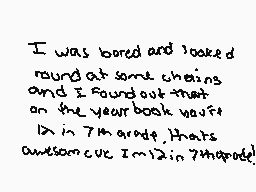 I was bored and looked
round at some chains
and I found out that
on the year book you're
12 in 7th grade, thats
awesome cuz I'm 12 in 7th grade!